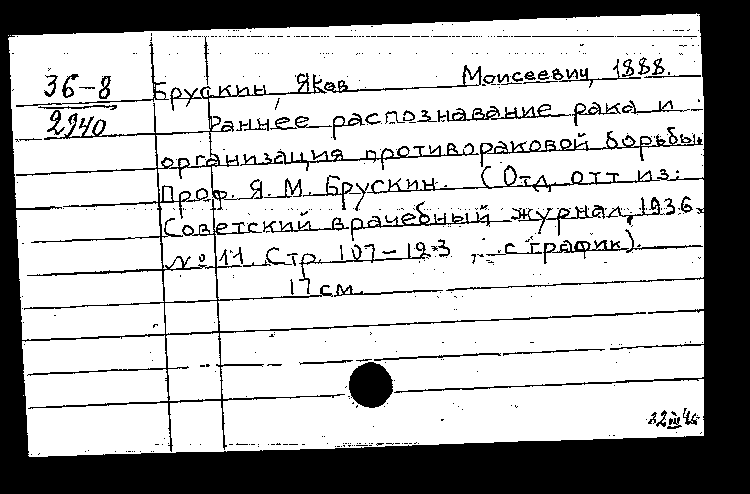 36-8
2940
Брускин, Яков Моисеевич, 1888.
Раннее распознавание рака и
организация противораковой борьбы.
Проф. Я. М. Брускин. (Отд. отт. из:
Советский врачебный журнал, 1936.
№ 11. Стр. 107-123, с график).
17 см.